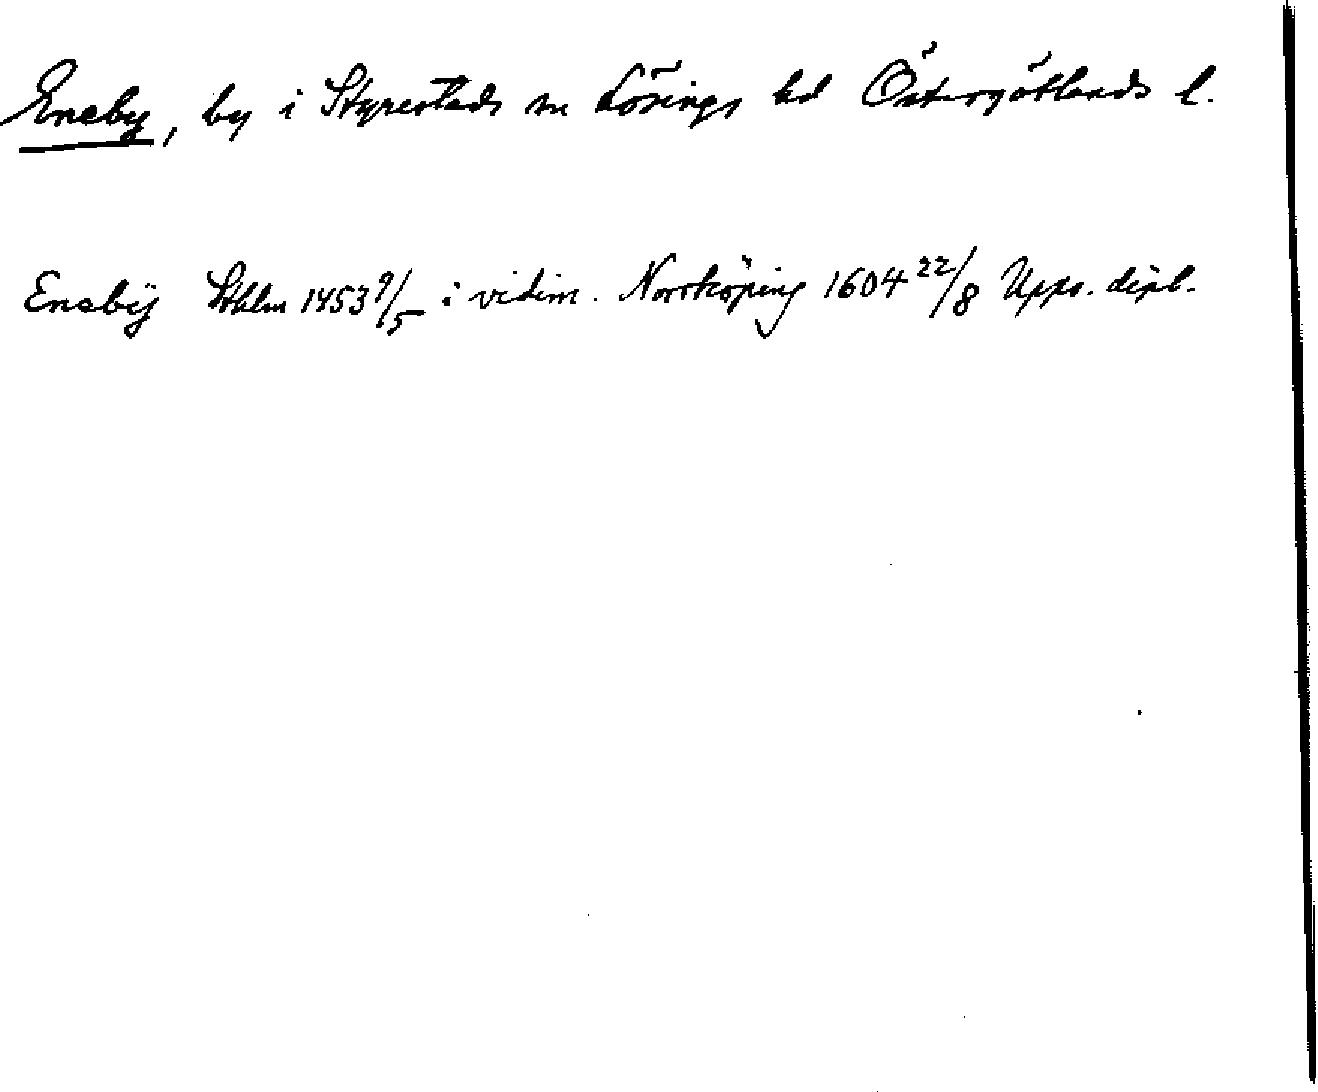 Eneby, by i Styrestads sn Lösings hd Östergötlands l.
Enebÿ Sthlm 1453 9/5 i vidim. Norrköping 1604 22/8 Upps. dipl.